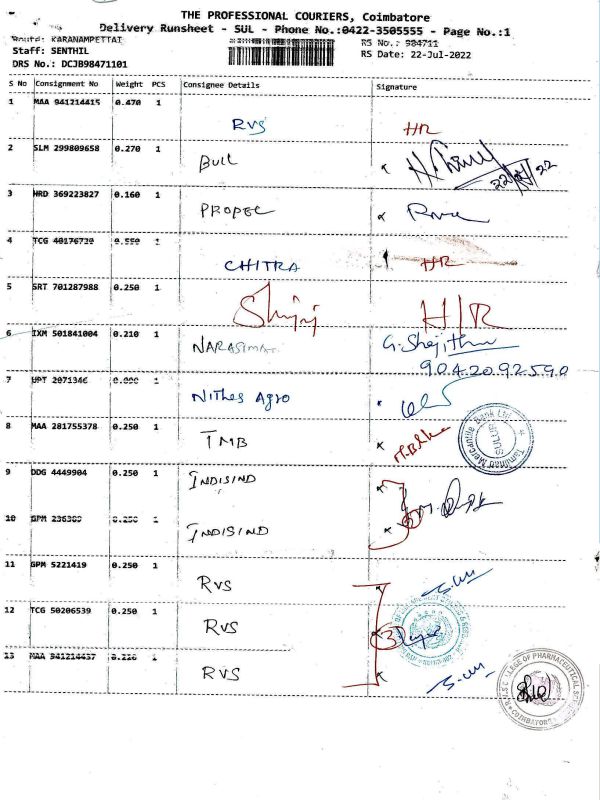 THE PROFESSIONAL COURIERS, Coimbatore
Delivery Runsheet - SUL - Phone No.:0422-3505555 - Page No.:1
Route: KARANAMPETTAI RS No.: 984711
Staff: SENTHIL RS Date: 22-Jul-2022
DRS No.: DCJB98471101
S No Consignment No Weight PCS Consignee Details Signature
1 MAA 941214415 0.470 1
RVS HR
2 SLM 299809658 0.270 1
Bull
22/07/22
3 HRD 369223827 0.160 1
PROPEL
4 TCG 40176720 0.550 1
CHITRA HR
5 SRT 701287988 0.250 1
H/R
6 IXM 501841004 0.210 1
NARASIMAN G. Shejithu
9042092590
7 UPT 2071346 1
Nithes Agro
8 MAA 281755378 0.250 1
TMB
Tamilnad Mercantile Bank Ltd
SULUR
9 DDG 4449904 0.250 1
INDISIND
10 GPM 236309 0.250 1
INDISIND
11 GPM 5221419 0.250 1
RVS
12 TCG 50206539 0.250 1
RVS
3
13 MAA 941214437 0.220 1
RVS
COLLEGE OF PHARMACEUTICAL
COIMBATORE